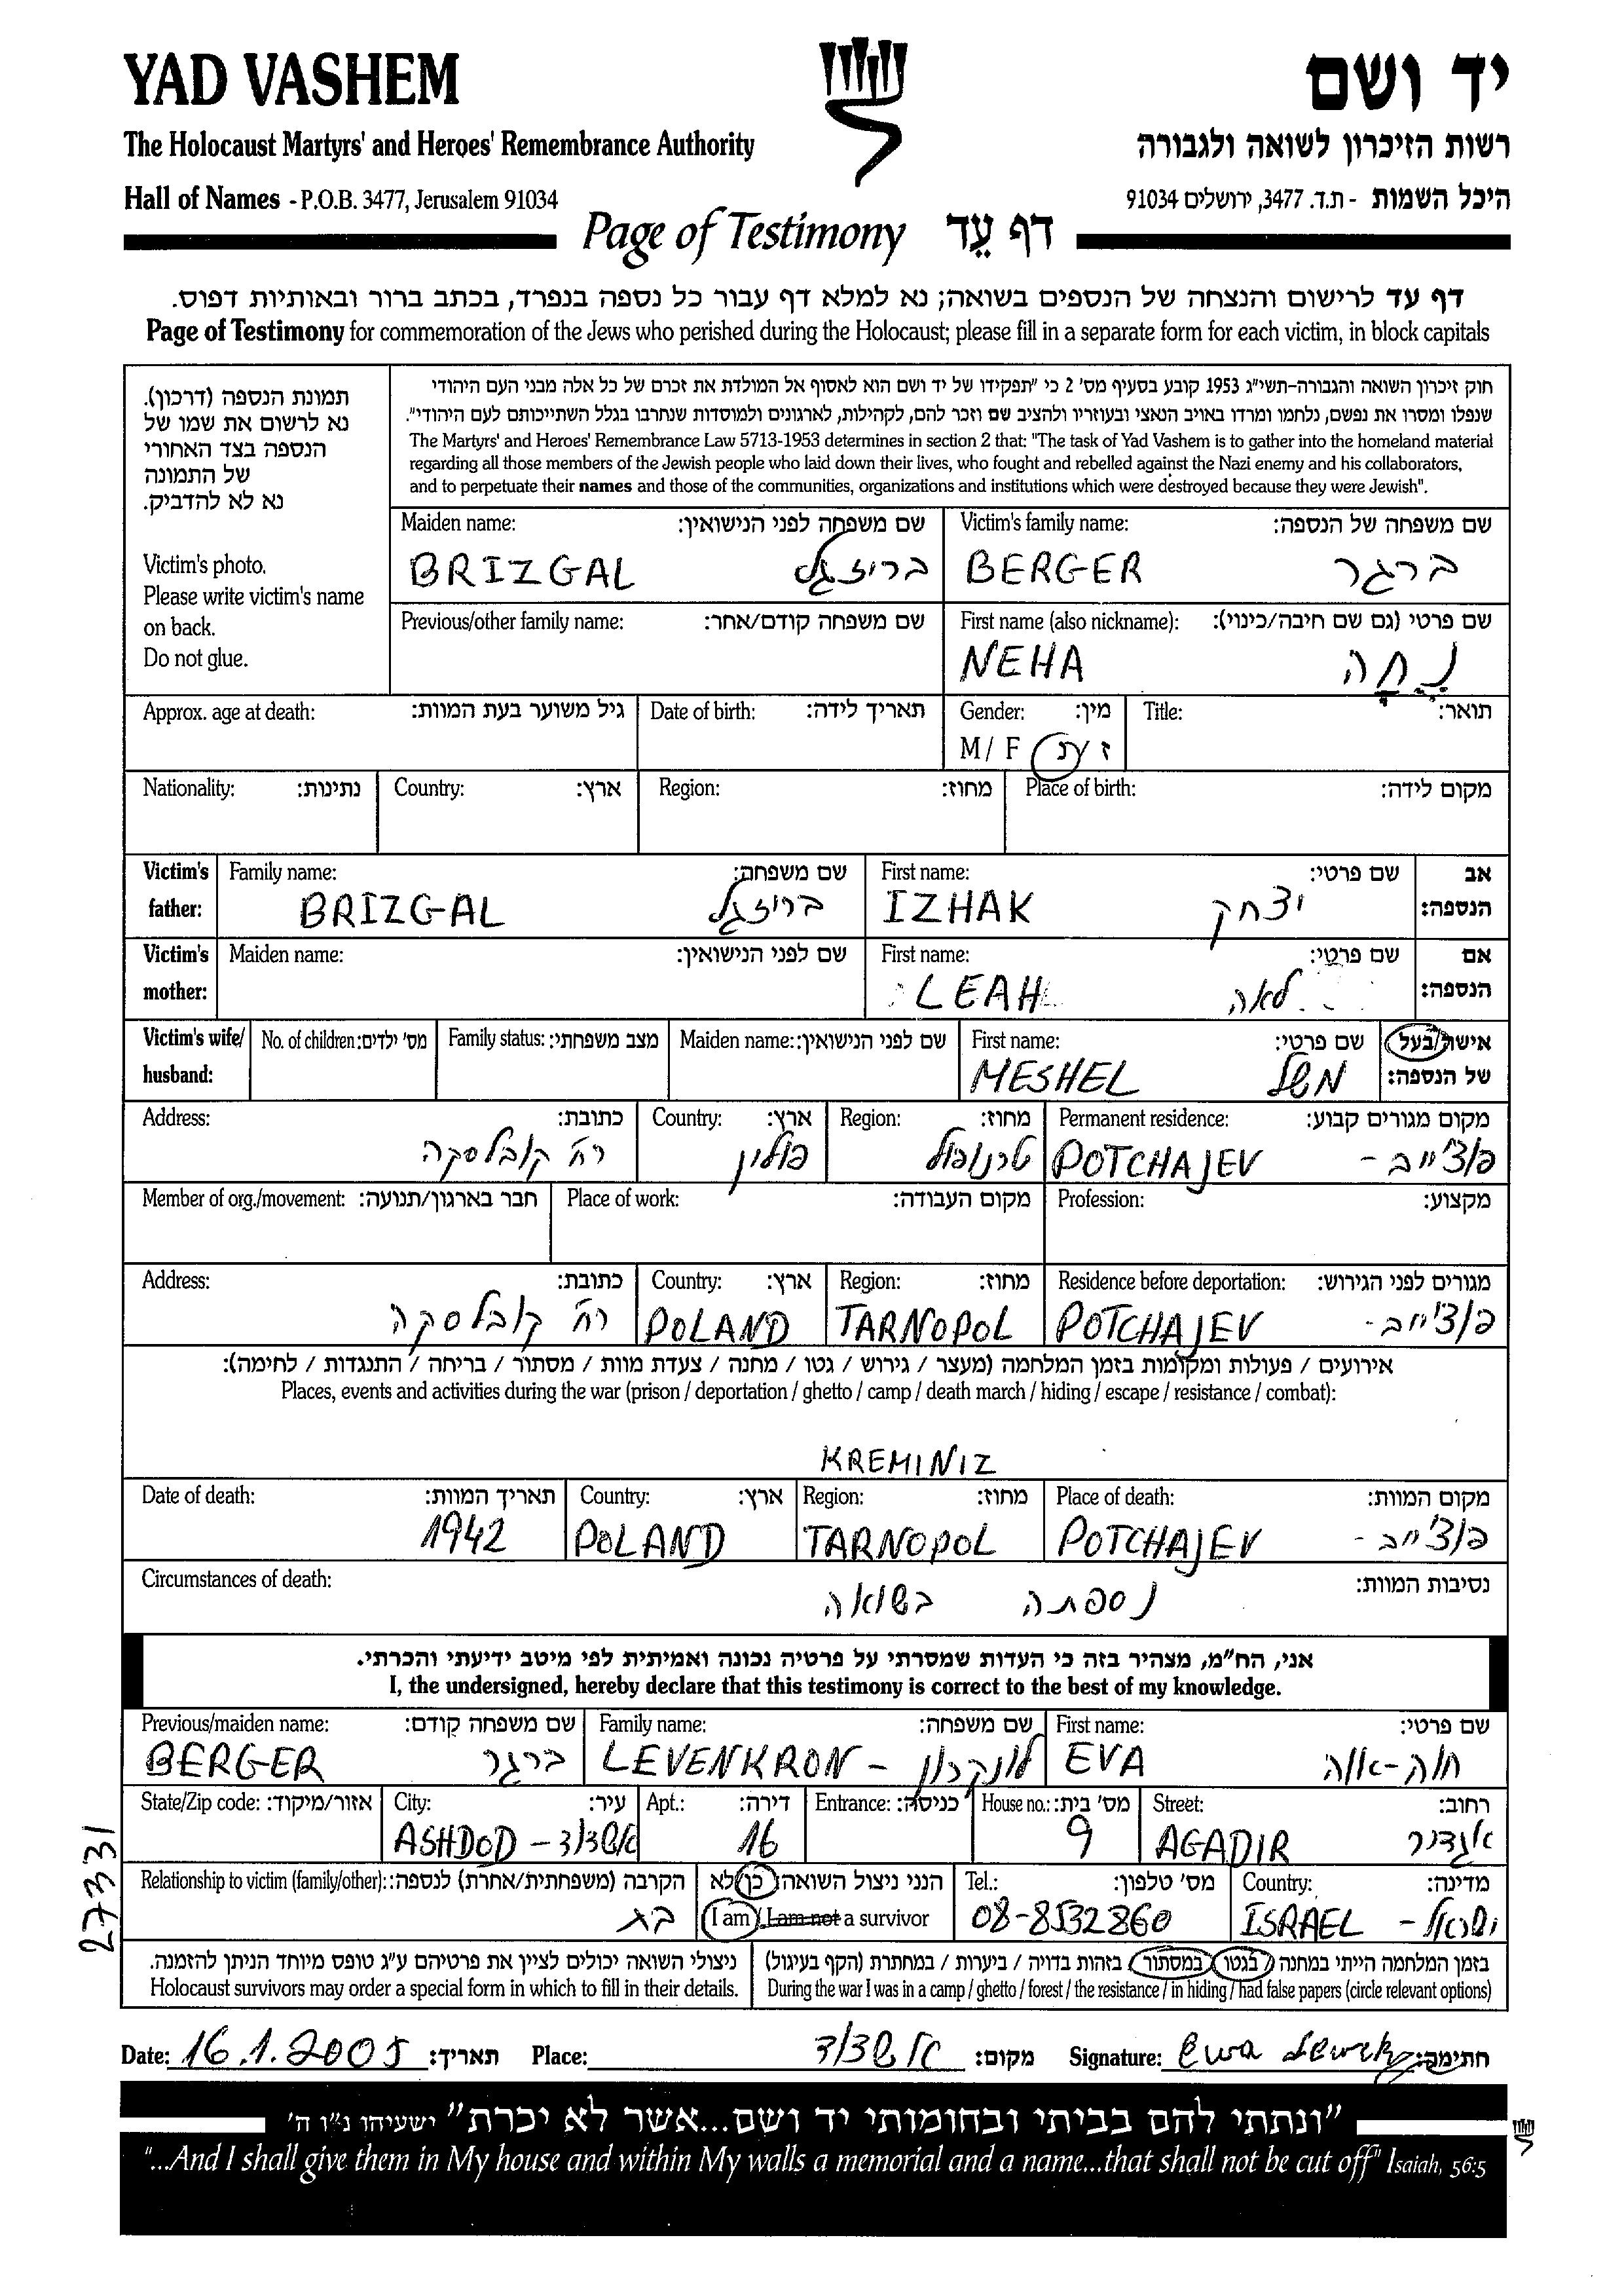 YAD VASHEM יד ושם
The Holocaust Martyrs' and Heroes' Remembrance Authority רשות הזיכרון לשואה ולגבורה
Hall of Names - P.O.B. 3477, Jerusalem 91034 היכל השמות - ת.ד. 3477, ירושלים 91034
Page of Testimony דף עֵד
דף עד לרישום והנצחה של הנספים בשואה; נא למלא דף עבור כל נספה בנפרד, בכתב ברור ובאותיות דפוס.
Page of Testimony for commemoration of the Jews who perished during the Holocaust; please fill in a separate form for each victim, in block capitals
תמונת הנספה (דרכון).
נא לרשום את שמו של
הנספה בצד האחורי
של התמונה
נא לא להדביק.
Victim's photo.
Please write victim's name
on back.
Do not glue.
חוק זיכרון השואה והגבורה-תשי"ג 1953 קובע בסעיף מס' 2 כי "תפקידו של יד ושם הוא לאסוף אל המולדת את זכרם של כל אלה מבני העם היהודי
שנפלו ומסרו את נפשם, נלחמו ומרדו באויב הנאצי ובעוזריו ולהציב שם וזכר להם, לקהילות, לארגונים ולמוסדות שנחרבו בגלל השתייכותם לעם היהודי".
The Martyrs' and Heroes' Remembrance Law 5713-1953 determines in section 2 that: "The task of Yad Vashem is to gather into the homeland material
regarding all those members of the Jewish people who laid down their lives, who fought and rebelled against the Nazi enemy and his collaborators,
and to perpetuate their names and those of the communities, organizations and institutions which were destroyed because they were Jewish".
Maiden name: שם משפחה לפני הנישואין: Victim's family name: שם משפחה של הנספה:
BRIZGAL בריזגל BERGER ברגר
Previous/other family name: שם משפחה קודם/אחר: First name (also nickname): שם פרטי (גם שם חיבה/כינוי):
NEHA נֶחָה
Approx. age at death: גיל משוער בעת המוות: Date of birth: תאריך לידה: Gender: מין: Title: תואר:
M / F ז / נ
Nationality: נתינות: Country: ארץ: Region: מחוז: Place of birth: מקום לידה:
Victim's father: Family name: שם משפחה: First name: שם פרטי: אב הנספה:
BRIZGAL בריזגל IZHAK יצחק
Victim's mother: Maiden name: שם לפני הנישואין: First name: שם פרטי: אם הנספה:
LEAH לאה
Victim's wife/ husband: No. of children: מס' ילדים: Family status: מצב משפחתי: Maiden name: שם לפני הנישואין: First name: שם פרטי: אישה/בעל של הנספה:
MESHEL משל
Address: כתובת: Country: ארץ: Region: מחוז: Permanent residence: מקום מגורים קבוע:
רח' קובלסקה פולין טרנופול POTCHAJEV פוצ'ייב-
Member of org./movement: חבר בארגון/תנועה: Place of work: מקום העבודה: Profession: מקצוע:
Address: כתובת: Country: ארץ: Region: מחוז: Residence before deportation: מגורים לפני הגירוש:
רח' קובלסקה POLAND TARNOPOL POTCHAJEV פוצ'ייב-
אירועים / פעולות ומקומות בזמן המלחמה (מעצר / גירוש / גטו / מחנה / צעדת מוות / מסתור / בריחה / התנגדות / לחימה):
Places, events and activities during the war (prison / deportation / ghetto / camp / death march / hiding / escape / resistance / combat):
KREMINIZ
Date of death: תאריך המוות: Country: ארץ: Region: מחוז: Place of death: מקום המוות:
1942 POLAND TARNOPOL POTCHAJEV פוצ'ייב-
Circumstances of death: נסיבות המוות:
נספתה בשואה
אני, הח"מ, מצהיר בזה כי העדות שמסרתי על פרטיה נכונה ואמיתית לפי מיטב ידיעתי והכרתי.
I, the undersigned, hereby declare that this testimony is correct to the best of my knowledge.
Previous/maiden name: שם משפחה קודם: Family name: שם משפחה: First name: שם פרטי:
BERGER ברגר LEVENKRON - לונקרון EVA חוה-אווה
State/Zip code: אזור/מיקוד: City: עיר: Apt.: דירה: Entrance: כניסה: House no.: מס' בית: Street: רחוב:
ASHDOD - אשדוד 16 9 AGADIR אגדיר
27331
Relationship to victim (family/other): הקרבה (משפחתית/אחרת) לנספה: הנני ניצול השואה כן/לא Tel.: מס' טלפון: Country: מדינה:
בת I am / I am not a survivor 08-8532860 ISRAEL - ישראל
ניצולי השואה יכולים לציין את פרטיהם ע"ג טופס מיוחד הניתן להזמנה. בזמן המלחמה הייתי במחנה / בגטו / במסתור / בזהות בדויה / ביערות / במחתרת (הקף בעיגול)
Holocaust survivors may order a special form in which to fill in their details. During the war I was in a camp / ghetto / forest / the resistance / in hiding / had false papers (circle relevant options)
Date: 16.1.2005 תאריך: Place: אשדוד מקום: Signature: ewa חתימה:
"ונתתי להם בביתי ובחומותי יד ושם...אשר לא יכרת" ישעיהו נ"ו ה'
"...And I shall give them in My house and within My walls a memorial and a name...that shall not be cut off" Isaiah, 56:5